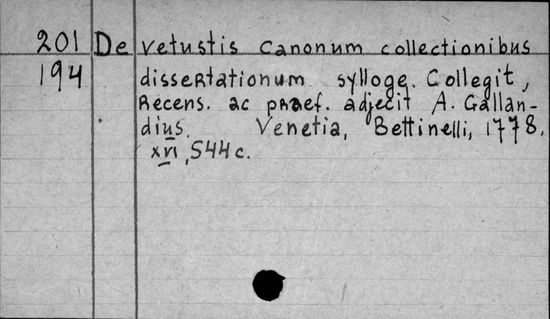 201 De vetustis canonum collectionibus
194 dissertationum sylloge. Collegit,
Recens. ac praef. adjecit A. Gallan-
dius. Venetia, Bettinelli, 1778.
XVI, 544 c.